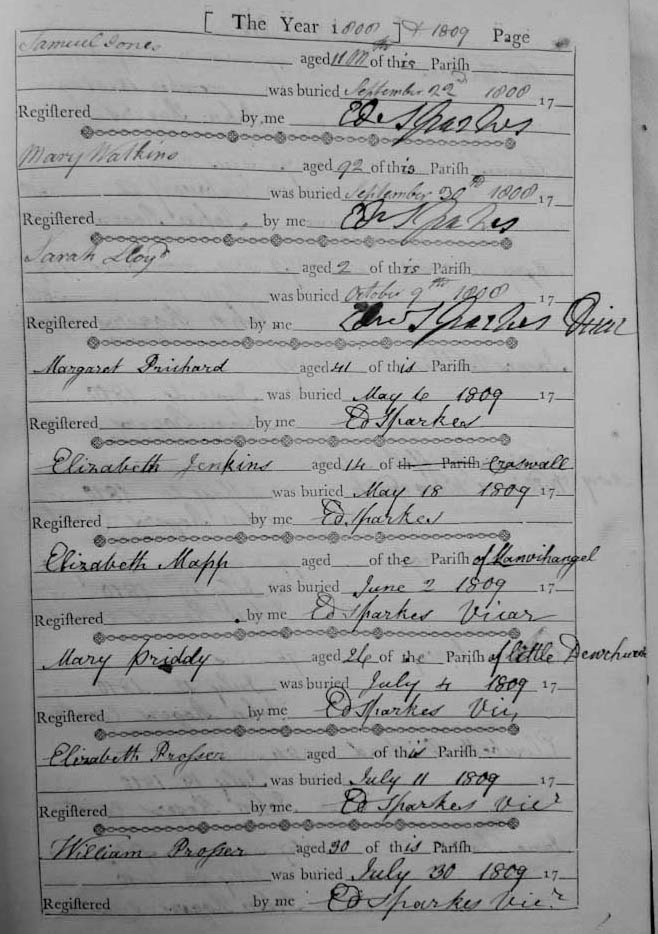 [ The Year 1808 ] & 1809 Page
Samuel Jones
aged 11 M.th of this Pariſh
was buried September 22d 1808 17
Regiſtered by me Ed Sparkes
Mary Watkins
aged 92 of this Pariſh
was buried September 30th 1808 17
Regiſtered by me Ed Sparkes
Sarah Lloyd
aged 2 of this Pariſh
was buried October 9th 1808 17
Regiſtered by me Edw Sparkes Vicar
Margaret Prichard aged 41 of this Pariſh
was buried May 6 1809 17
Regiſtered by me Ed Sparkes
Elizabeth Jenkins aged 14 of th Pariſh Craswall
was buried May 18 1809 17
Regiſtered by me Ed Sparkes
Elizabeth Mapp aged of the Pariſh of Lanvihangel
was buried June 2 1809 17
Regiſtered by me Ed Sparkes Vicar
Mary Priddy aged 26 of the Pariſh of little Dewchurch
was buried July 4 1809 17
Regiſtered by me Ed Sparkes Vic.
Elizabeth Proſser aged of this Pariſh
was buried July 11 1809 17
Regiſtered by me Ed Sparkes Vicr
William Proſser aged 30 of this Pariſh
was buried July 30 1809 17
Regiſtered by me Ed Sparkes Vic.r